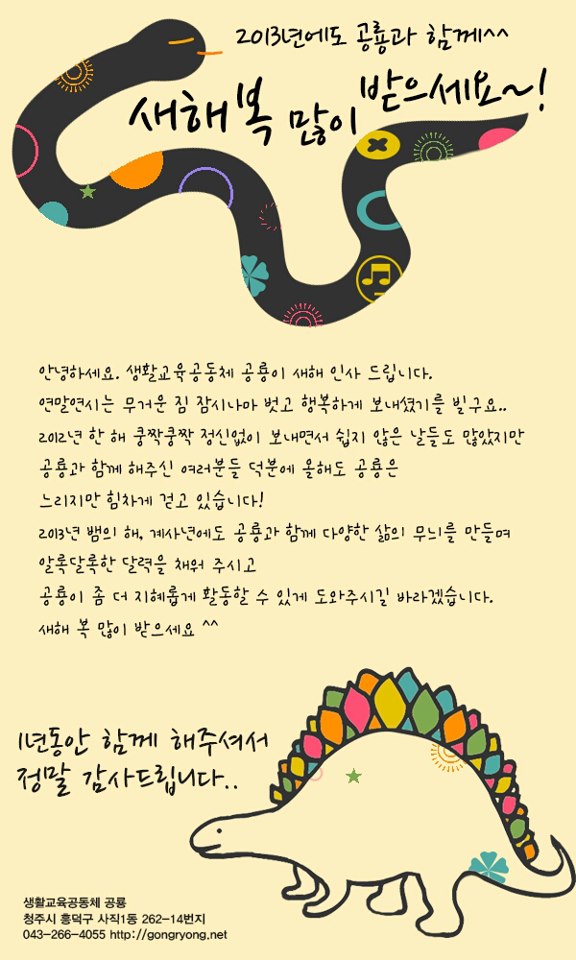 2013년에도 공룡과 함께^^
새해 복 많이 받으세요~!
안녕하세요. 생활교육공동체 공룡이 새해 인사 드립니다.
연말연시는 무거운 짐 잠시나마 벗고 행복하게 보내셨기를 빌구요..
2012년 한 해 쿵짝쿵짝 정신없이 보내면서 쉽지 않은 날들도 많았지만
공룡과 함께 해주신 여러분들 덕분에 올해도 공룡은
느리지만 힘차게 걷고 있습니다!
2013년 뱀의 해, 계사년에도 공룡과 함께 다양한 삶의 무늬를 만들며
알록달록한 달력을 채워 주시고
공룡이 좀 더 지혜롭게 활동할 수 있게 도와주시길 바라겠습니다.
새해 복 많이 받으세요 ^^
1년동안 함께 해주셔서
정말 감사드립니다..
생활교육공동체 공룡
청주시 흥덕구 사직1동 262-14번지
043-266-4055 http://gongryong.net